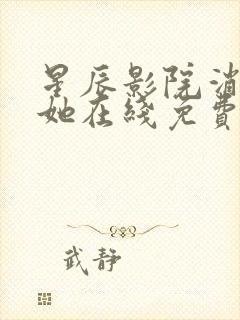 星辰影院消
她在线免费
武静